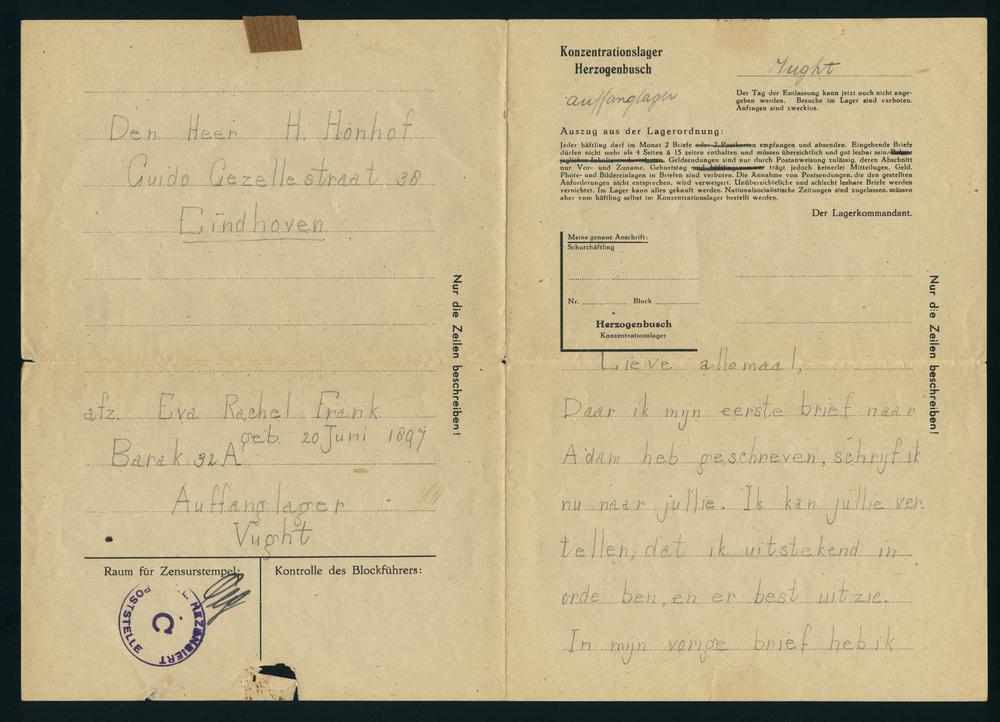 Den Heer H. Honhof
Guido Gezellestraat 38
Eindhoven
Nur die Zeilen beschreiben!
afz. Eva Rachel Frank
geb. 20 Juni 1897
Barak 32A
Auffanglager
Vught
Raum für Zensurstempel:
Kontrolle des Blockführers:
POSTSTELLE
C
Konzentrationslager
Herzogenbusch
auffanglager
Vught
Der Tag der Entlassung kann jetzt noch nicht ange-
geben werden. Besuche im Lager sind verboten.
Anfragen sind zwecklos.
Auszug aus der Lagerordnung:
Jeder häftling darf im Monat 2 Briefe oder 2 Postkarten empfangen und absenden. Eingehende Briefe
dürfen nicht mehr als 4 Seiten à 15 zeilen enthalten und müssen übersichtlich und gut lesbar sein.
Geldsendungen sind nur durch Postanweisung zulässig, deren Abschnitt
nur Vor- und Zuname, Geburtstag trägt jedoch keinerlei Mitteilungen, Geld,
Photo- und Bildereinlagen in Briefen sind verboten. Die Annahme von Postsendungen, die den gestellten
Anforderungen nicht entsprechen, wird verweigert. Unübersichtliche und schlecht lesbare Briefe werden
vernichtet. Im Lager kann alles gekauft werden. Nationalsocialistische Zeitungen sind zugelassen, müssen
aber vom häftling selbst im Konzentrationslager bestellt werden.
Der Lagerkommandant.
Meine genaue Anschrift:
Schutzhäftling
Nr. Block
Herzogenbusch
Konzentrationslager
Nur die Zeilen beschreiben!
Lieve allemaal,
Daar ik mijn eerste brief naar
A'dam heb geschreven, schrijf ik
nu naar jullie. Ik kan jullie ver-
tellen, dat ik uitstekend in
orde ben, en er best uitzie.
In mijn vorige brief heb ik